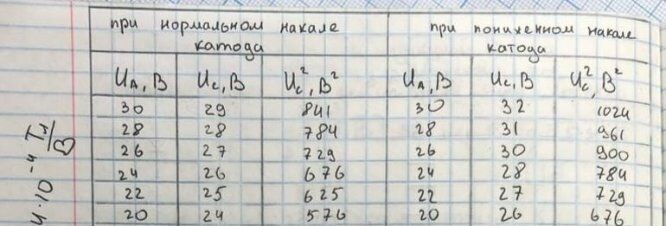 при нормальном накале катода | при пониженном накале катода
U_A, В | U_c, В | U_c², В² | U_A, В | U_c, В | U_c², В²
30 | 29 | 841 | 30 | 32 | 1024
28 | 28 | 784 | 28 | 31 | 961
26 | 27 | 729 | 26 | 30 | 900
24 | 26 | 676 | 24 | 28 | 784
22 | 25 | 625 | 22 | 27 | 729
20 | 24 | 576 | 20 | 26 | 676
4·10⁻⁴ Тл/В